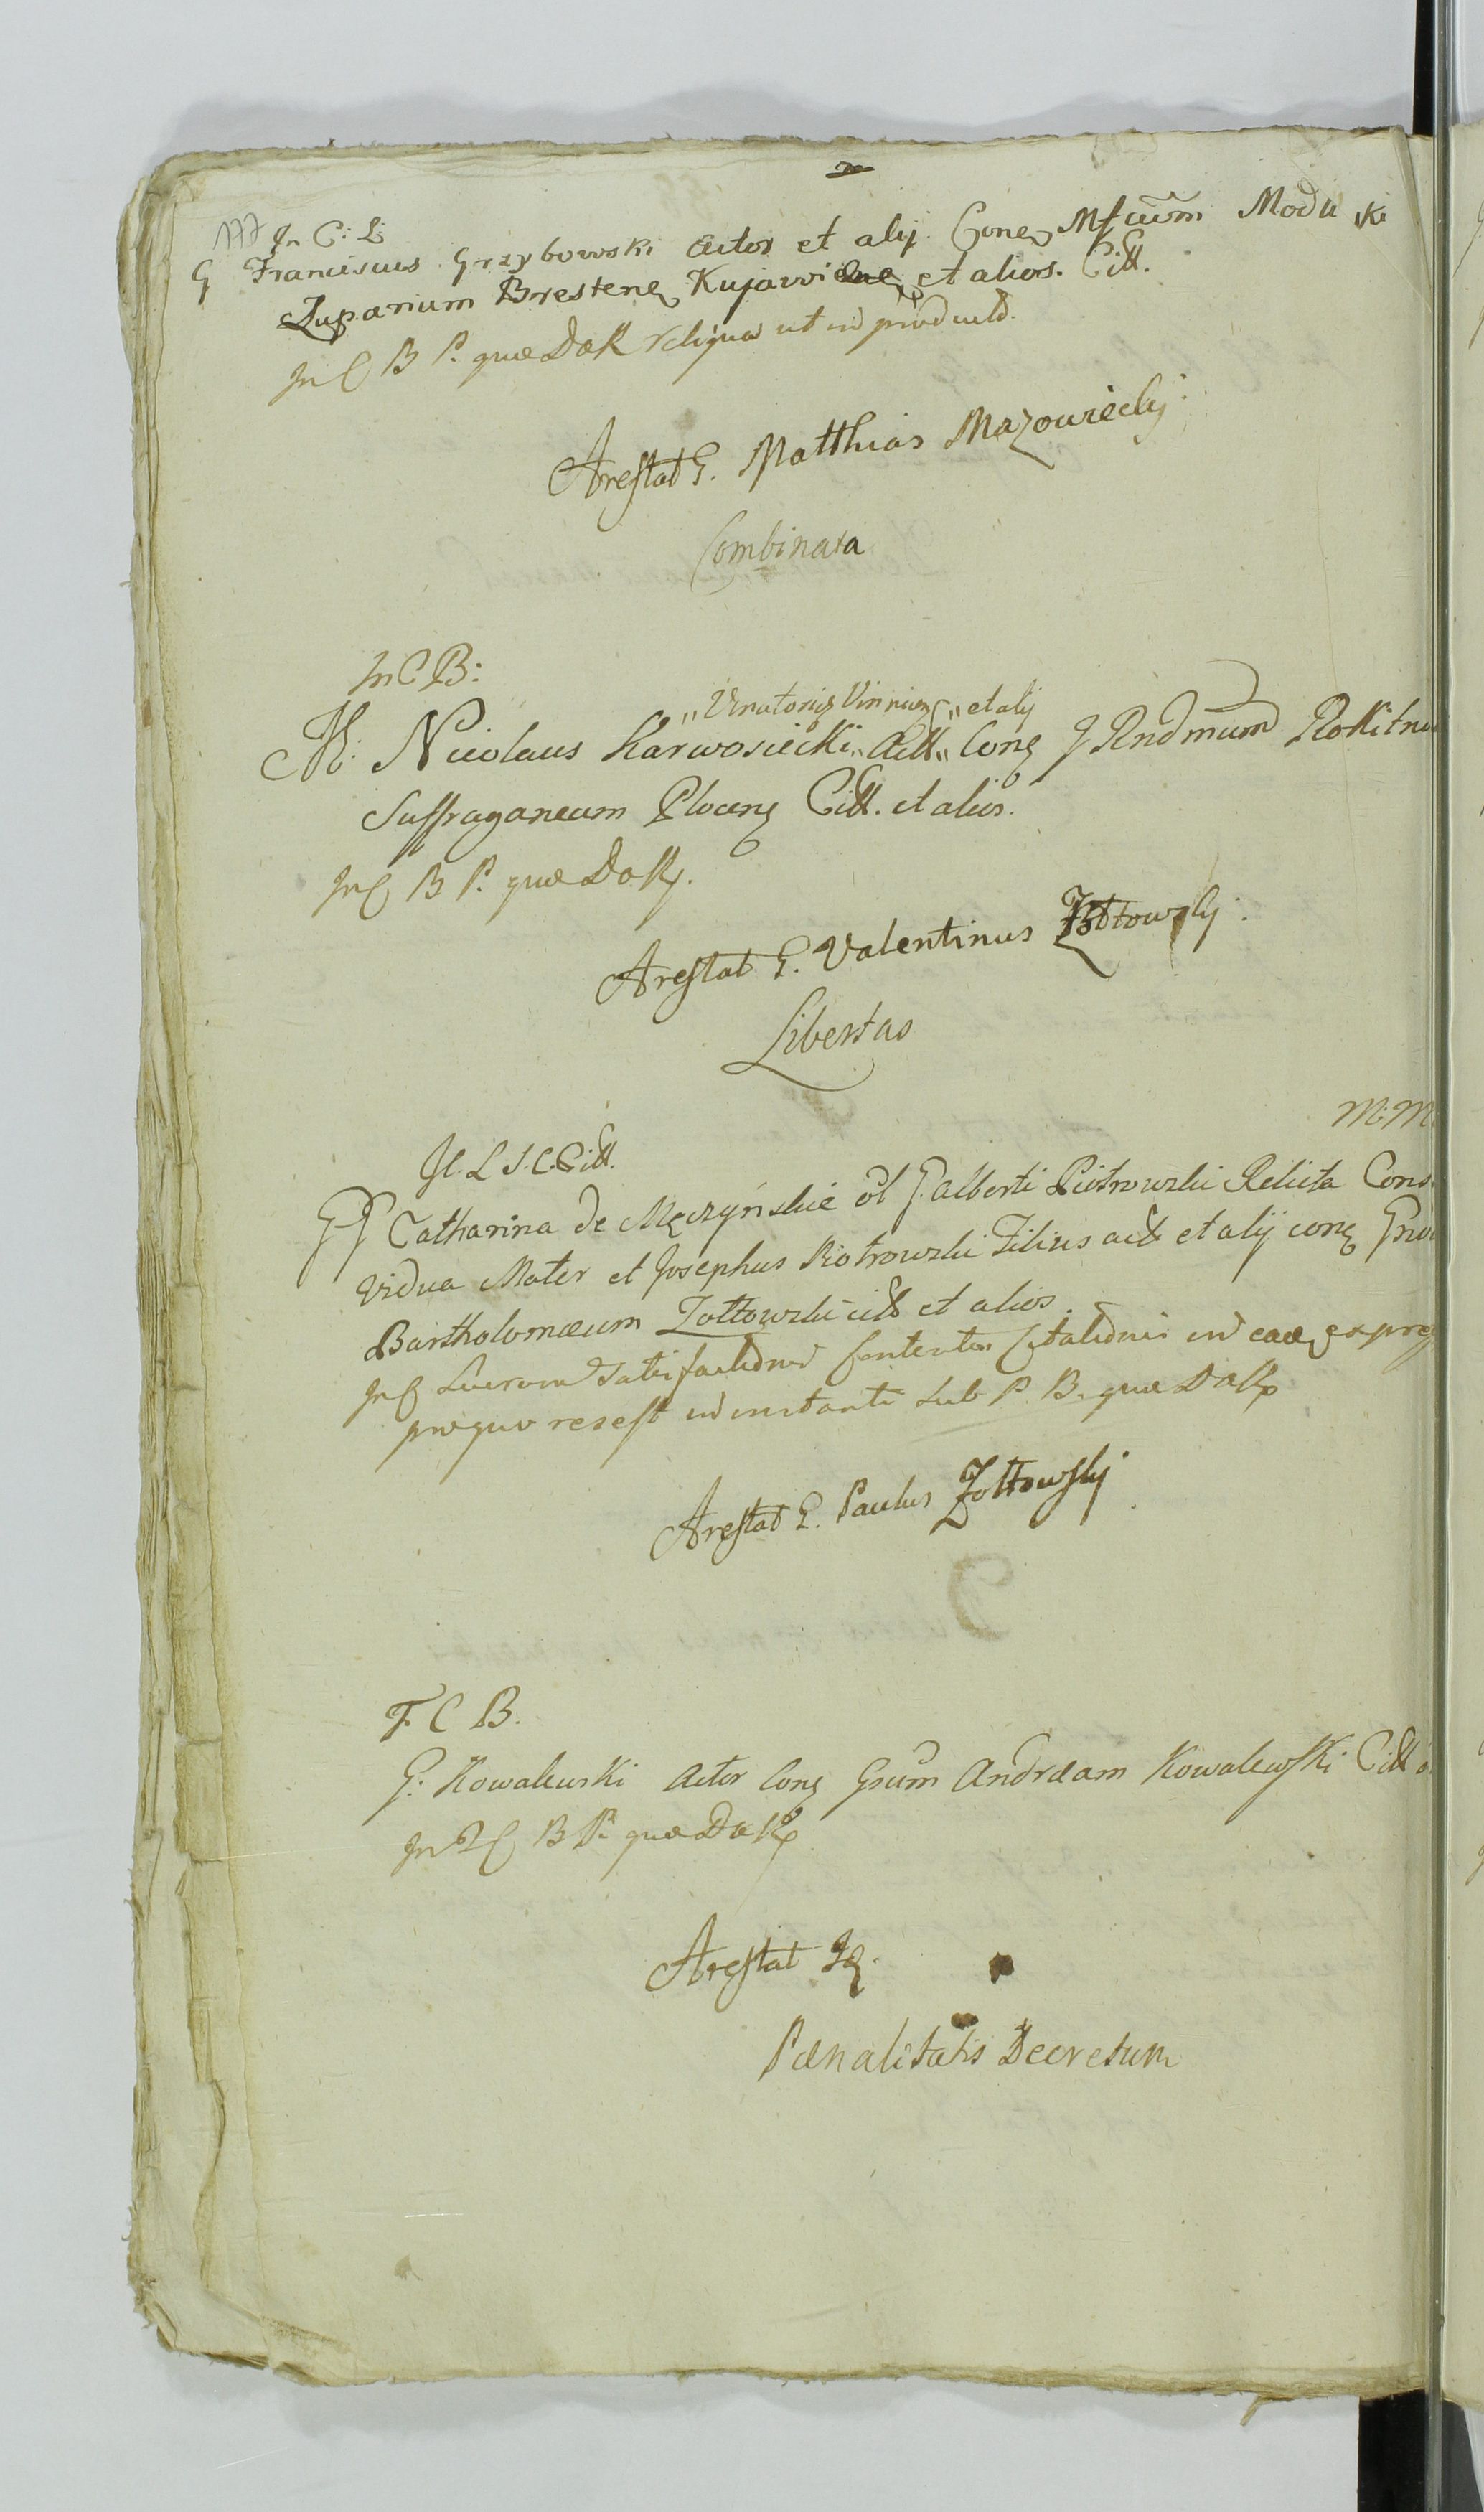 In C: L:
G Franciscus Grzybowski Actor et alij. Cone Mfcum Modli ski
Zuparium Brestene Kujavi et alios. Citt.
In C B P. quæ DaR reliqua ut in
Arestat G. Matthias Mazowiecky
Combinata
In C B:
"Venatoris Vinnicen" et alij
M: Nicolaus Karwosiecki "Act" Cone J Rndmum Rokitni
Suffraganeum Plocens Citt. et alios.
In C B P. quæ DaR.
Arestat G. Valentinus Zottowsky.
Libertas
M: M
Il. L S. C. Citt.
GG Catharina de Męczyńskie ol G. Alberti Piotrowski Relicta Cons
Vidua Mater et Josephus Piotrowski Filius act et alij cone
Bartholomæum Zottowski citt et alios.
In C in eae expres
pro quo res est in instanti sub P. B. quæ DaR
Arestat G. Paulus Zottowsky
F C B.
G: Kowalewski Actor Cone Gsum Andræam Kowalewski Citt
In C B P. quæ DaR
Arestat
Pænalitatis Decretum